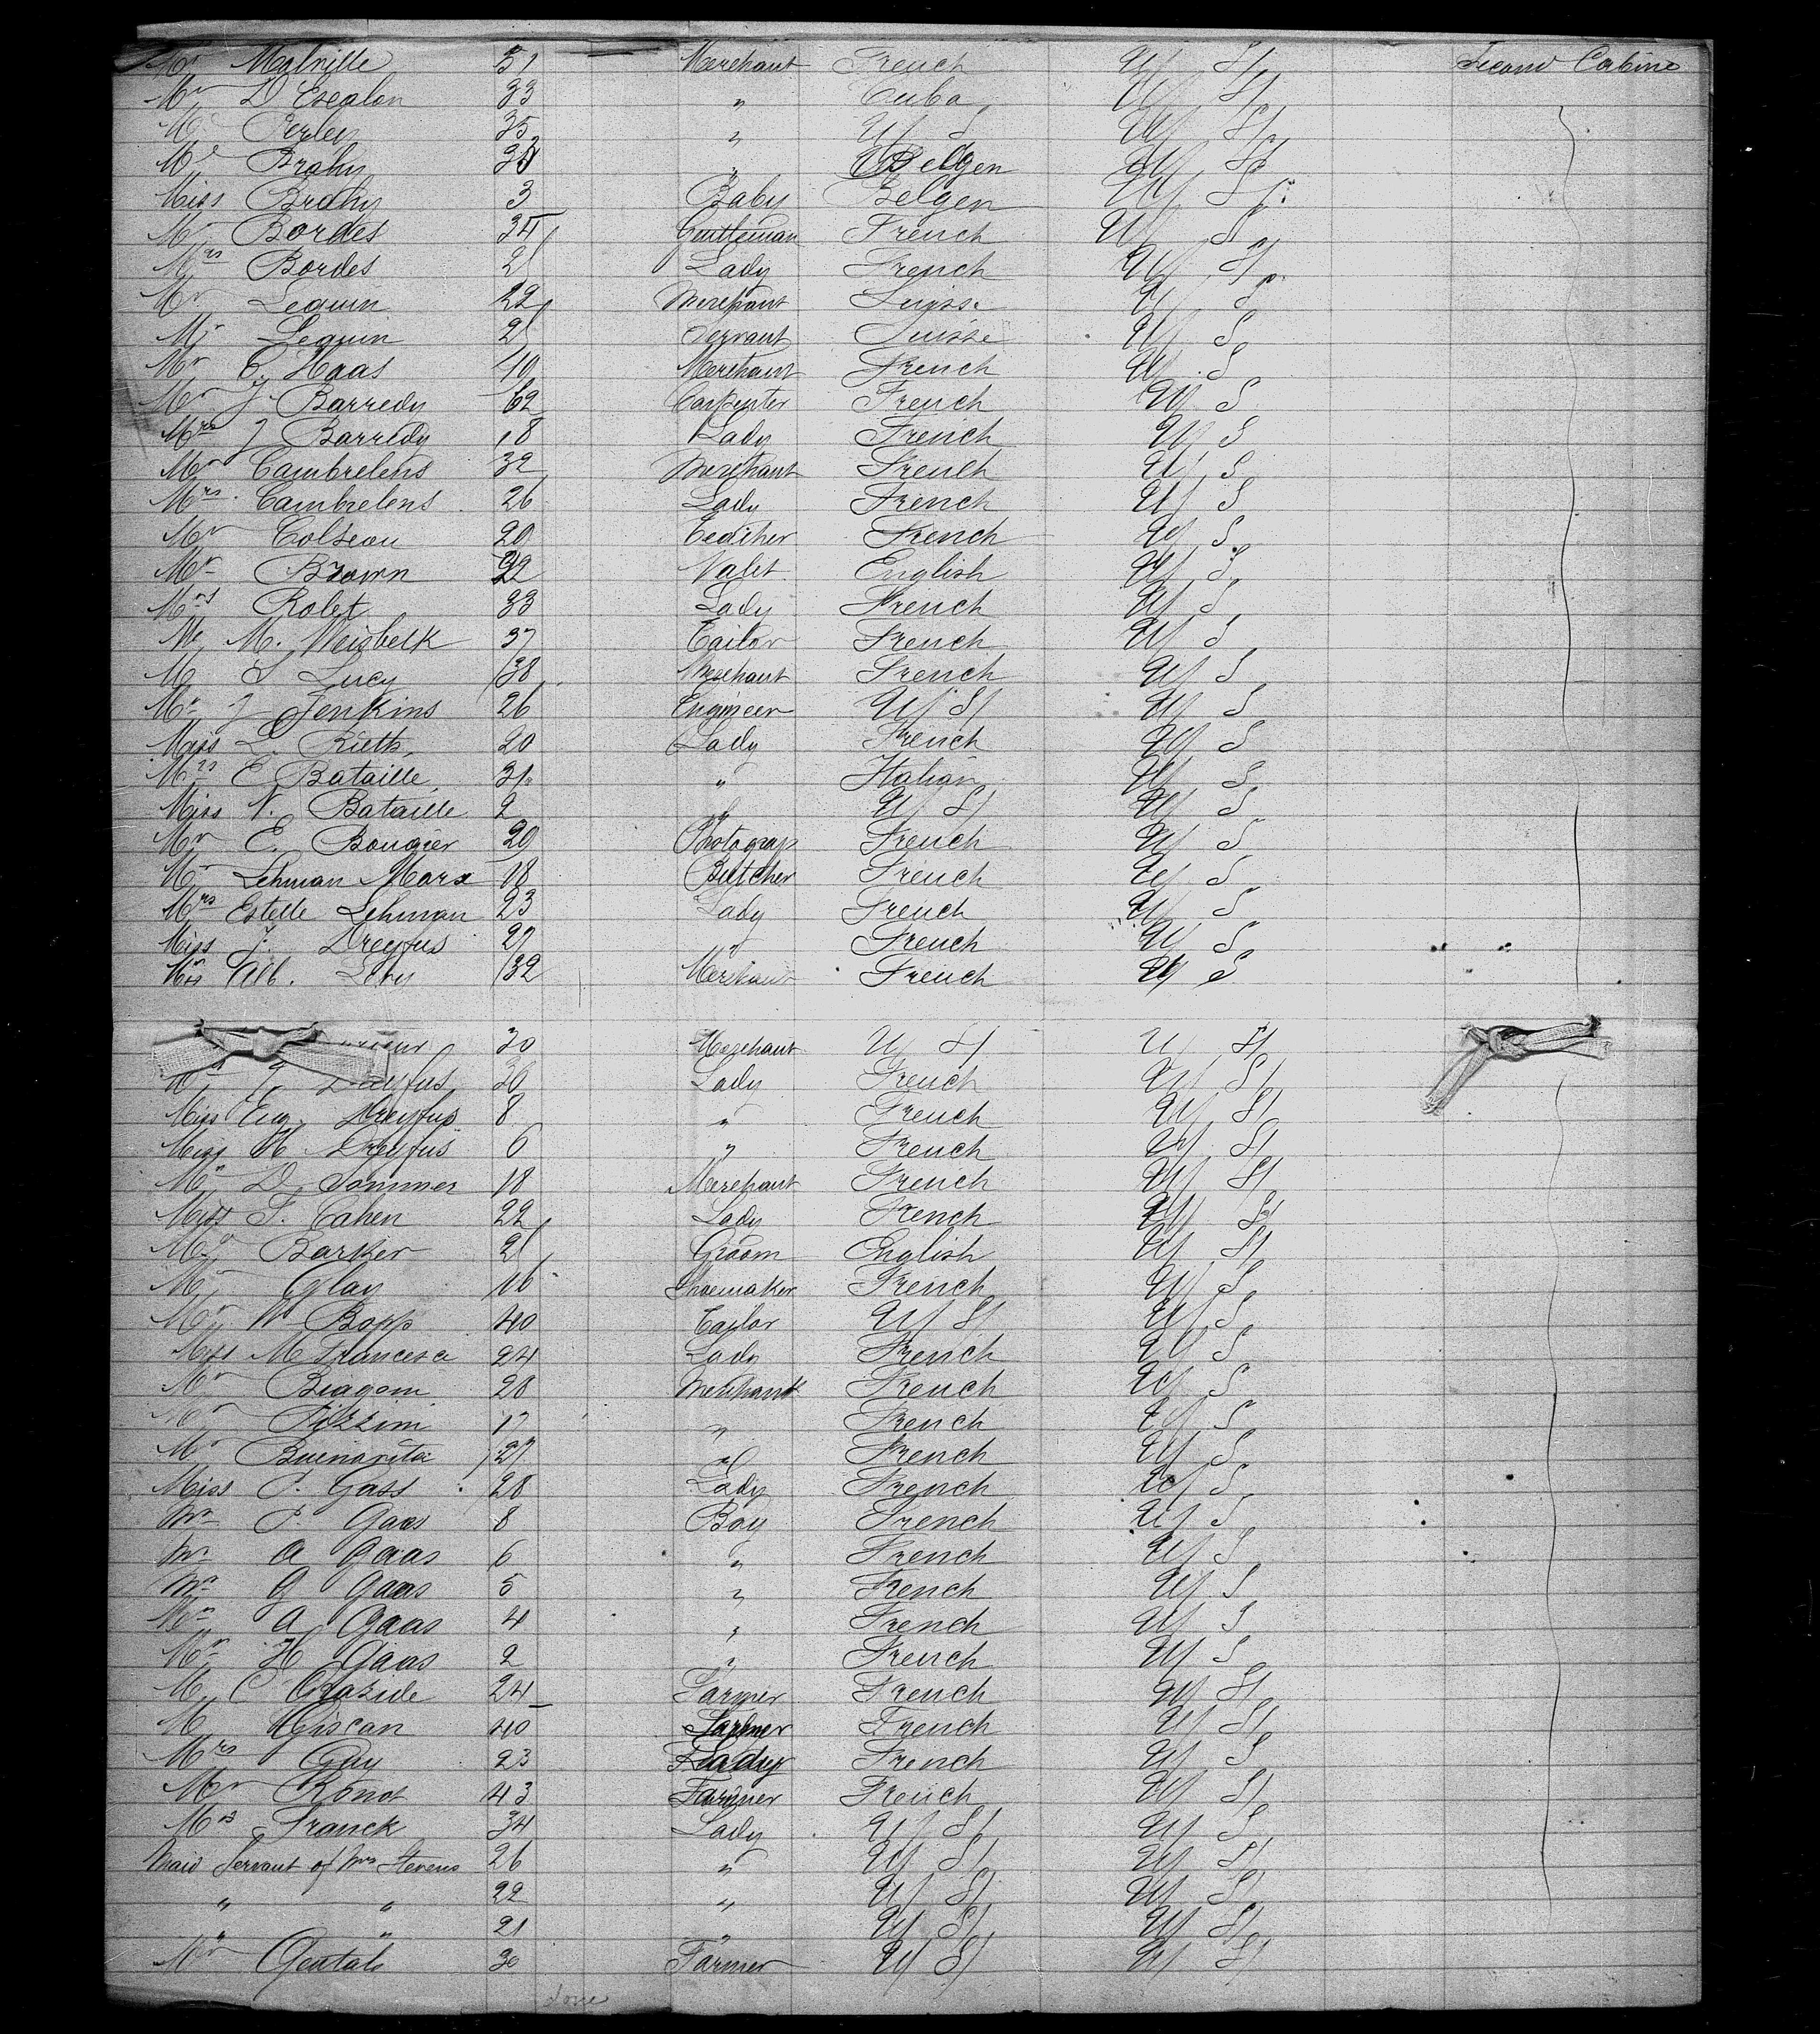 Mr Malville 51 Merchant French U S Second Cabine
Mr D Escalon 33 " Cuba U S
Mr Perley 35 " U S U S
Mr Brahy " Belgen U S
Miss Brahy 3 Baby Belgen U S
Mr Bordes 34 Gentleman French U S
Mrs Bordes 21 Lady French U S
Mr Lequin 22 Merchant Suisse U S
Mr Lequin 21 Servant Suisse U S
Mr C. Haas 19 Merchant French U S
Mr J Barredy 62 Carpenter French U S
Mrs J Barredy 18 Lady French U S
Mr Cambrelens 32 Merchant French U S
Mrs Cambrelens 26 Lady French U S
Mr Colseau 20 French U S
Mr Brown 22 Valet English U S
Mrs Rolet 33 Lady French U S
Mr M. Weisbelk 37 Tailor French U S
M S Lucy 38 Merchant French U S
Mr J Jenkins 26 Engineer U S U S
Miss L. Rieth 20 Lady French U S
Mrs C Bataille 31 " Italian U S
Miss V. Bataille 2 " U S U S
Mr E. Bougier 20 Photograp French U S
Mr Lehman Marx 18 Butcher French U S
Mrs Estelle Lehman 23 Lady French U S
Miss J. Dreyfus 27 " French U S
Alb. Levy 32 Merchant French U S
30 Merchant U S U S
Dreyfus 30 Lady French U S
Miss Eug. Dreyfus 8 " French U S
Miss H Dreyfus 6 " French U S
Mr D Sommer 18 Merchant French U S
Miss S. Cahen 22 Lady French U S
Mr Barker 21 Groom English U S
Mr Glay 16 Shoemaker French U S
Mr W Bopp 40 Taylor U S U S
Miss M Francesca 24 Lady French U S
Mr Biagom 28 Merchant French U S
Mr Pizzini 17 " French U S
Mr Buenavita 27 " French U S
Miss C. Gass 28 Lady French U S
Mr P. Gaas 8 Boy French U S
Mr A Gaas 6 " French U S
Mr G Gaas 5 " French U S
Mr A Gaas 4 " French U S
Mr H Gaas 2 " French U S
M C Graside 24 Farmer French U S
M Giscan 40 Farmer French U S
Mrs Guy 23 Lady French U S
Mr Ronot 43 Farmer French U S
Mrs Franck 34 Lady U S U S
Maid Servant of Mrs Stevens 26 " U S U S
" " 22 " U S U S
" " 21 " U S U S
Mr 30 Farmer U S U S